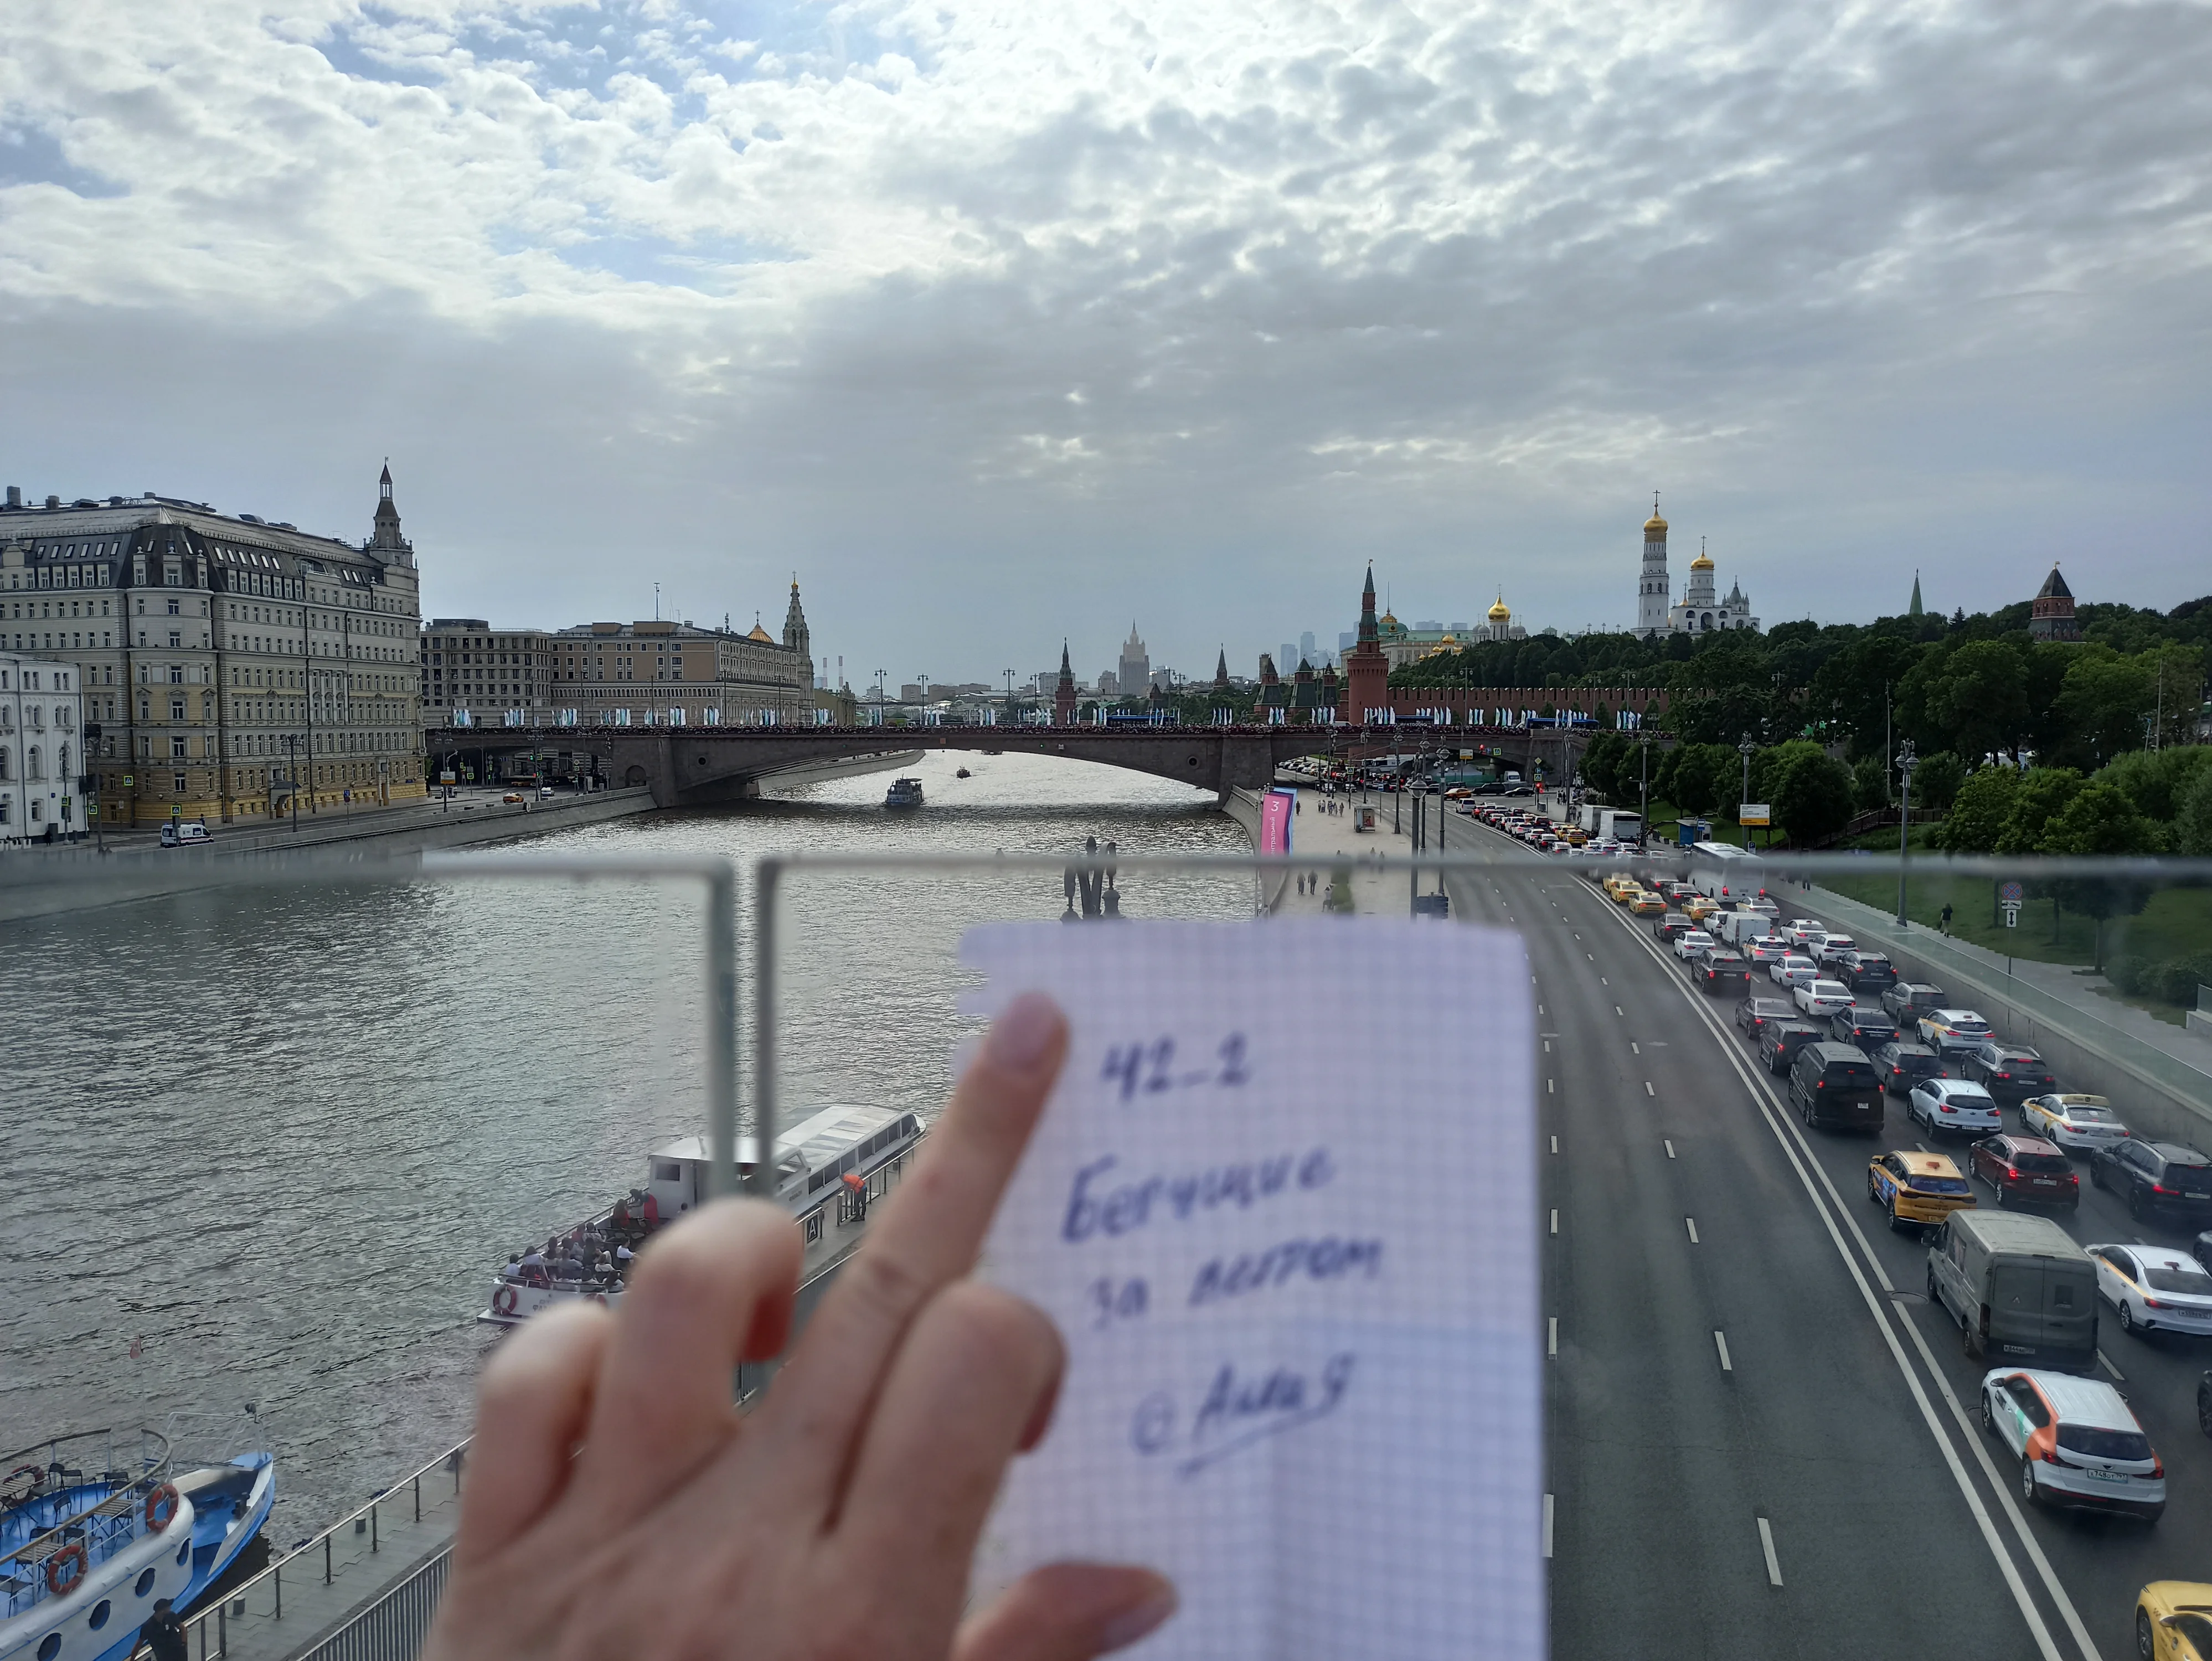 42_2
Бегущие
за летом
@АлиЯ
3
A